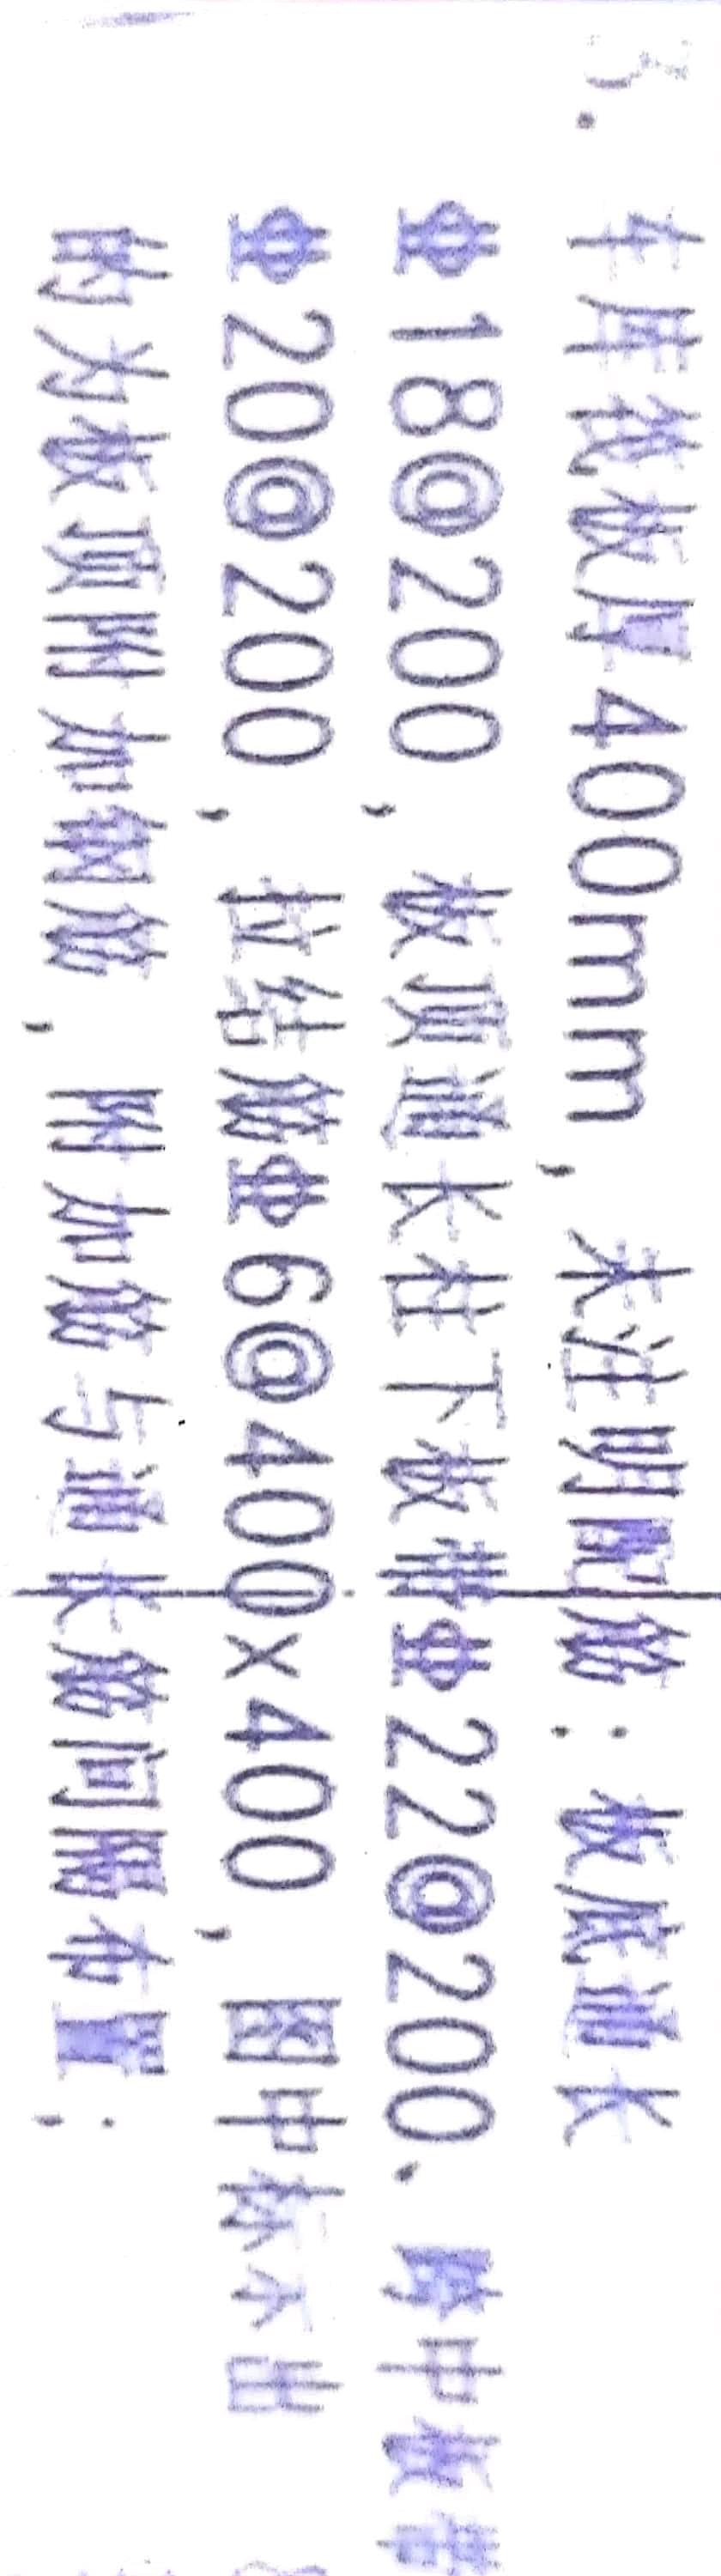 3. 车库筏板厚400mm,未注明配筋:板底通长
Φ18@200,板顶通长柱下板带Φ22@200、跨中板带
Φ20@200,拉结筋Φ6@400x400,图中标示出
的为板顶附加钢筋,附加筋与通长筋间隔布置;